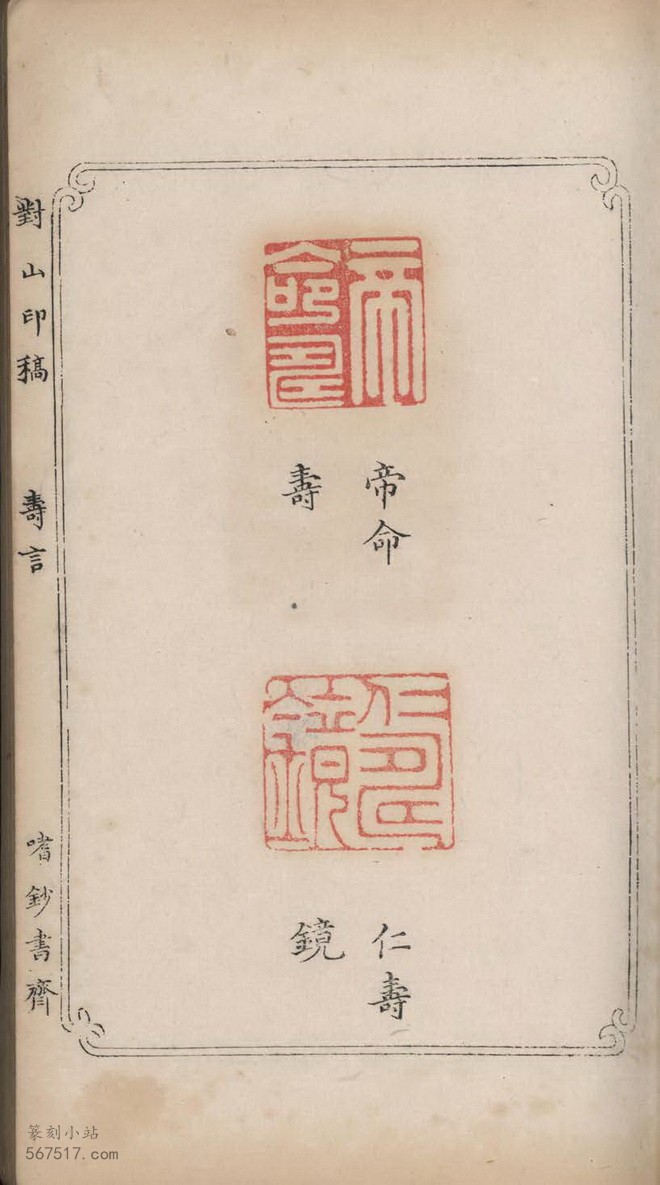 對山印稿 壽言 嗜鈔書齊
帝命壽
帝命
壽
仁壽鏡
仁壽
鏡
篆刻小站
567517.com